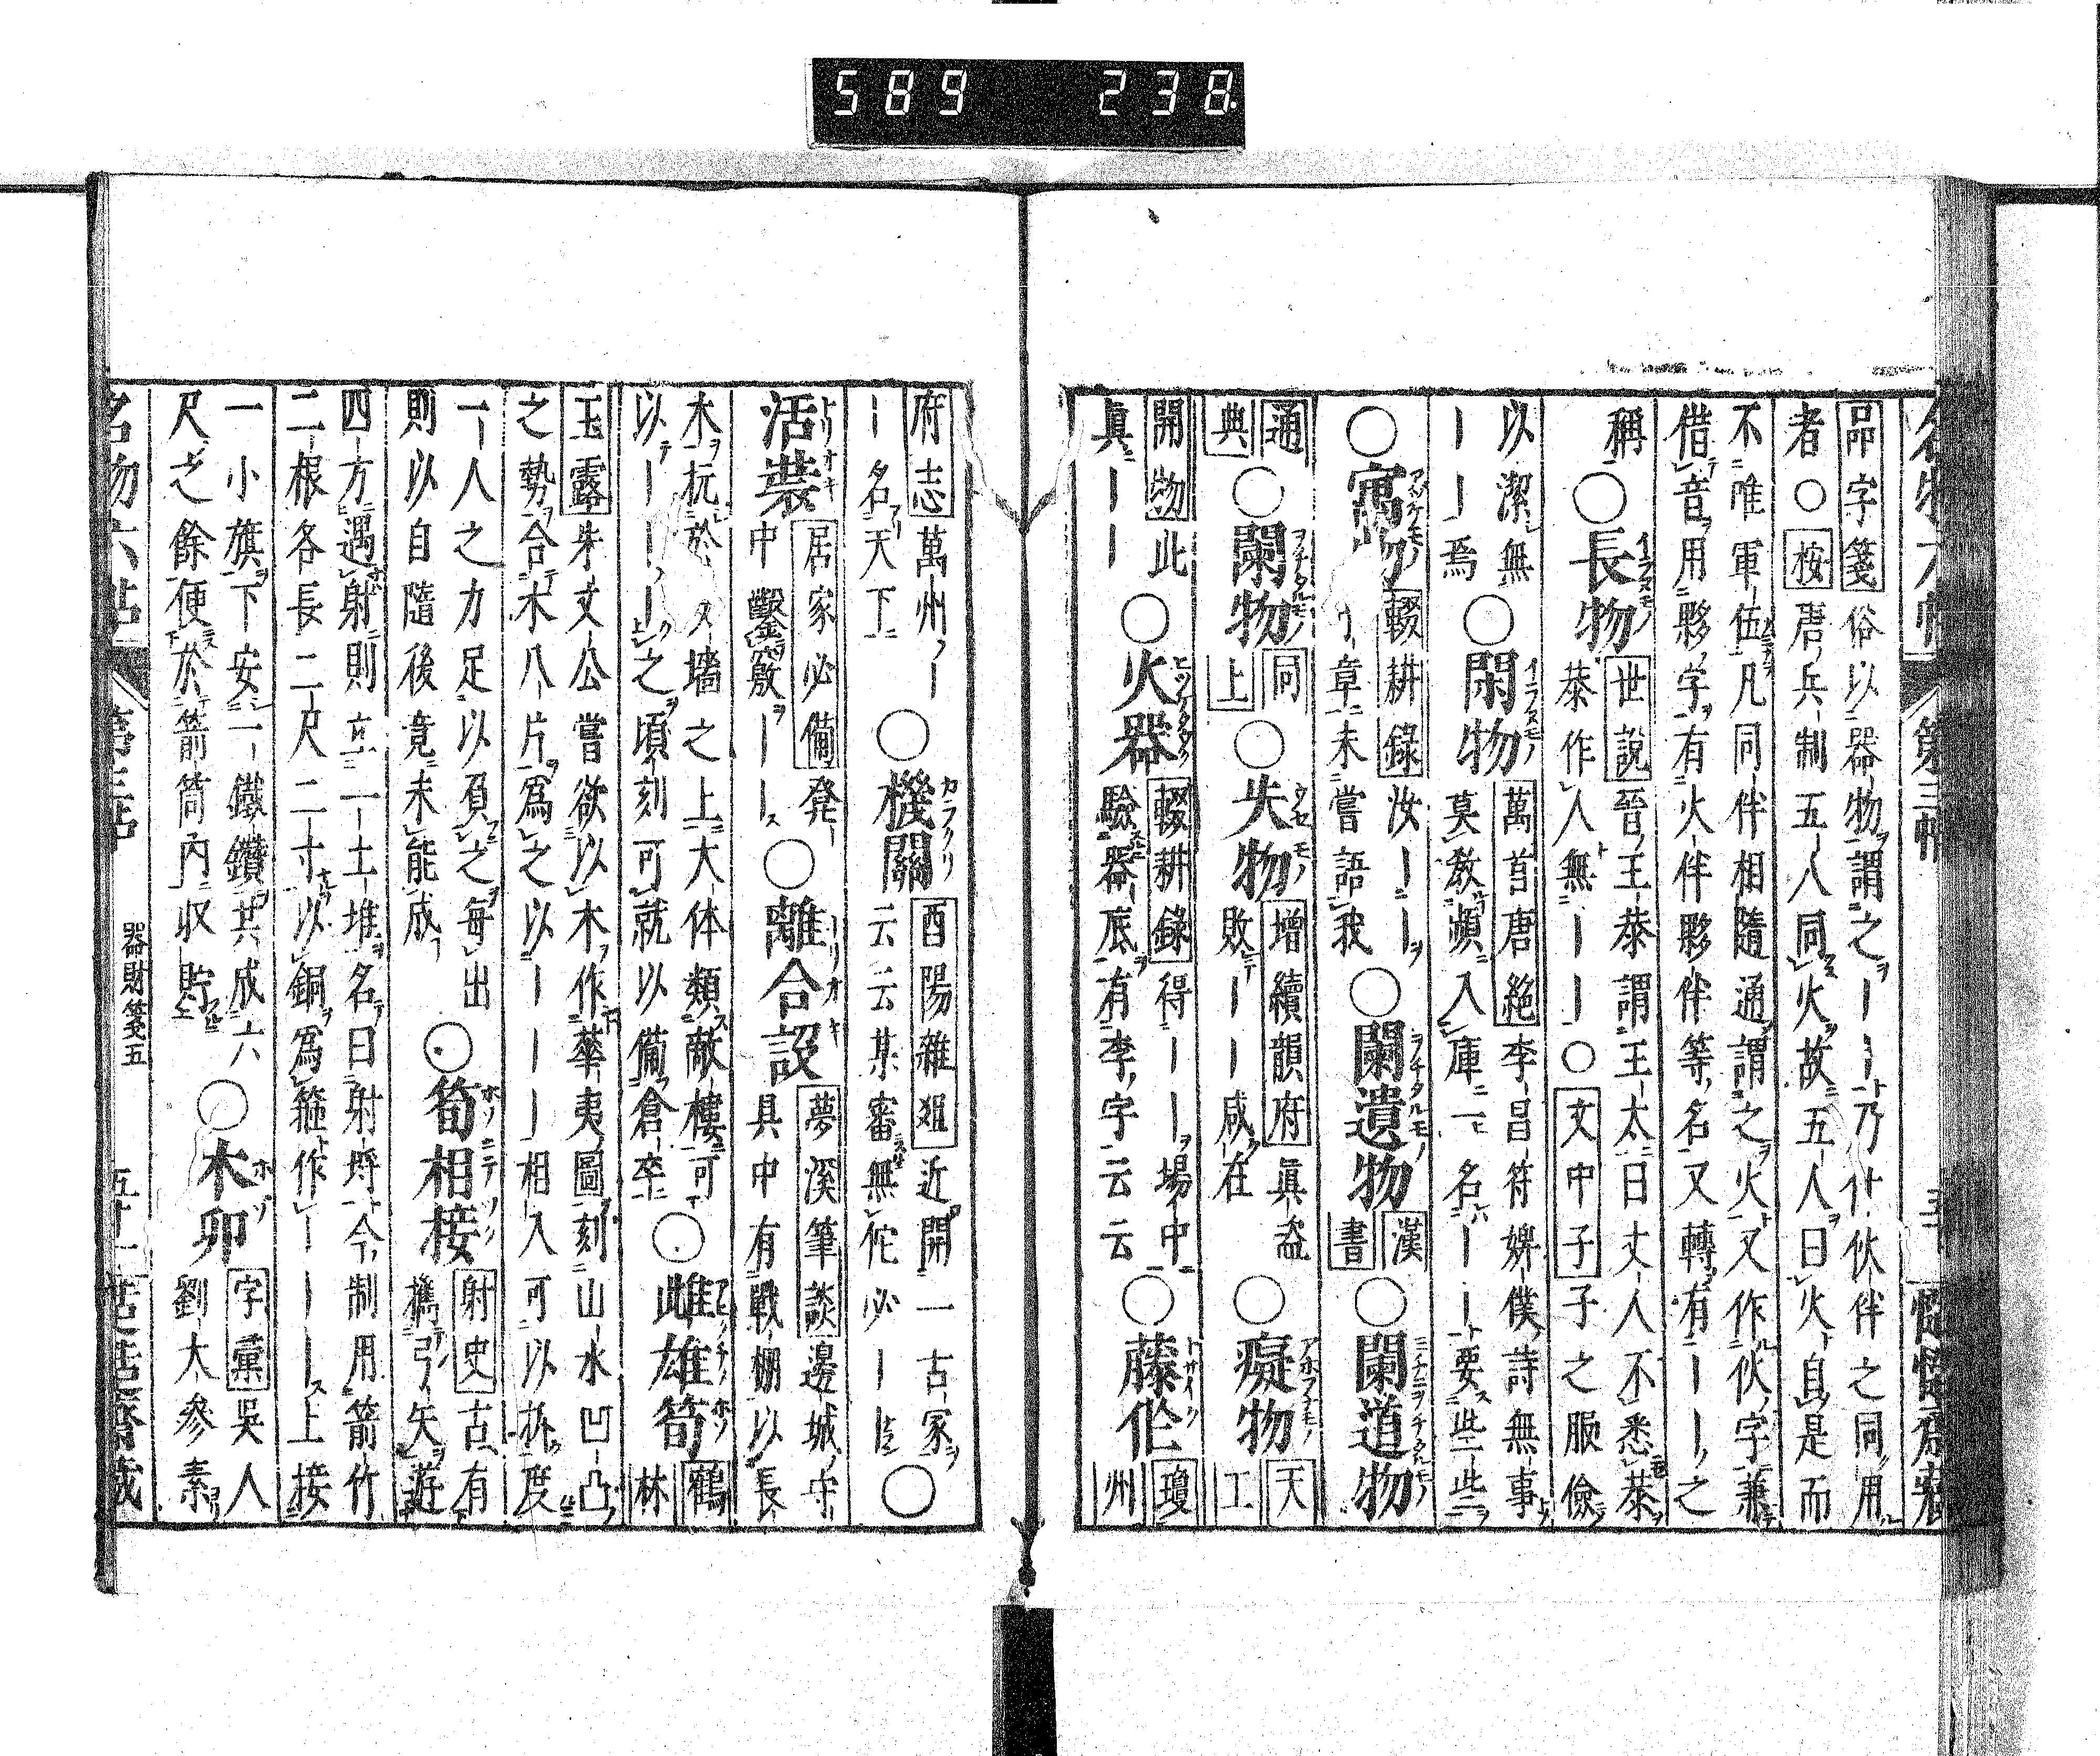 589 238.
品字箋俗以器物謂之ーー乃什伙伴之同用
者○桉唐兵制五人同火故五人曰火自是而
不唯軍伍凡同伴相隨通謂之火又作伙字兼
借音用夥字有火伴夥伴等名又轉有ーー之
稱○長物世說晉王恭謂王太曰丈人不悉恭
恭作人無ーー○文中子子之服儉
以潔無ーー焉○閑物萬首唐絶李昌符婢僕詩無事
莫教頻入庫一名ーー要些些
○寓物輟耕錄汝ーー
章未嘗語我○闌遺物漢書○闌道物
通典○闌物同上○失物增續韻府眞盗
敗ーー咸在○癡物天工
開物此○火器輟耕錄得ーー場中
眞ーー驗器底有李字云云○藤佮瓊州
府志萬州ー○機關酉陽雜俎近開一古冢
ー名天下云云某審無佗必ーー○
活裝居家必備凳
中鑿竅ーー○離合設夢溪筆談邊城守
具中有戰棚以長
木抗於墻之上大体類敵樓可
以ーーーー之頃刻可就以備倉卒○雌雄笱鶴林
玉露朱文公嘗欲以木作華夷圖刻山水凹凸
之勢合木八片爲之以ーーー相入可以拆度
一人之力足以負之每出
則以自隨後竟未能成○笱相接射史古有
攜弓矢遊
四方遇射則立一土堆名曰射埒今制用箭竹
二根各長二尺二寸以銅爲箍作ーーー上接
一小旗下安一鐵鑽共成六
尺之餘便於箭筒內収貯○木卯字彙吳人
劉大參素
名物六帖 第三帖 器財箋五 五十一